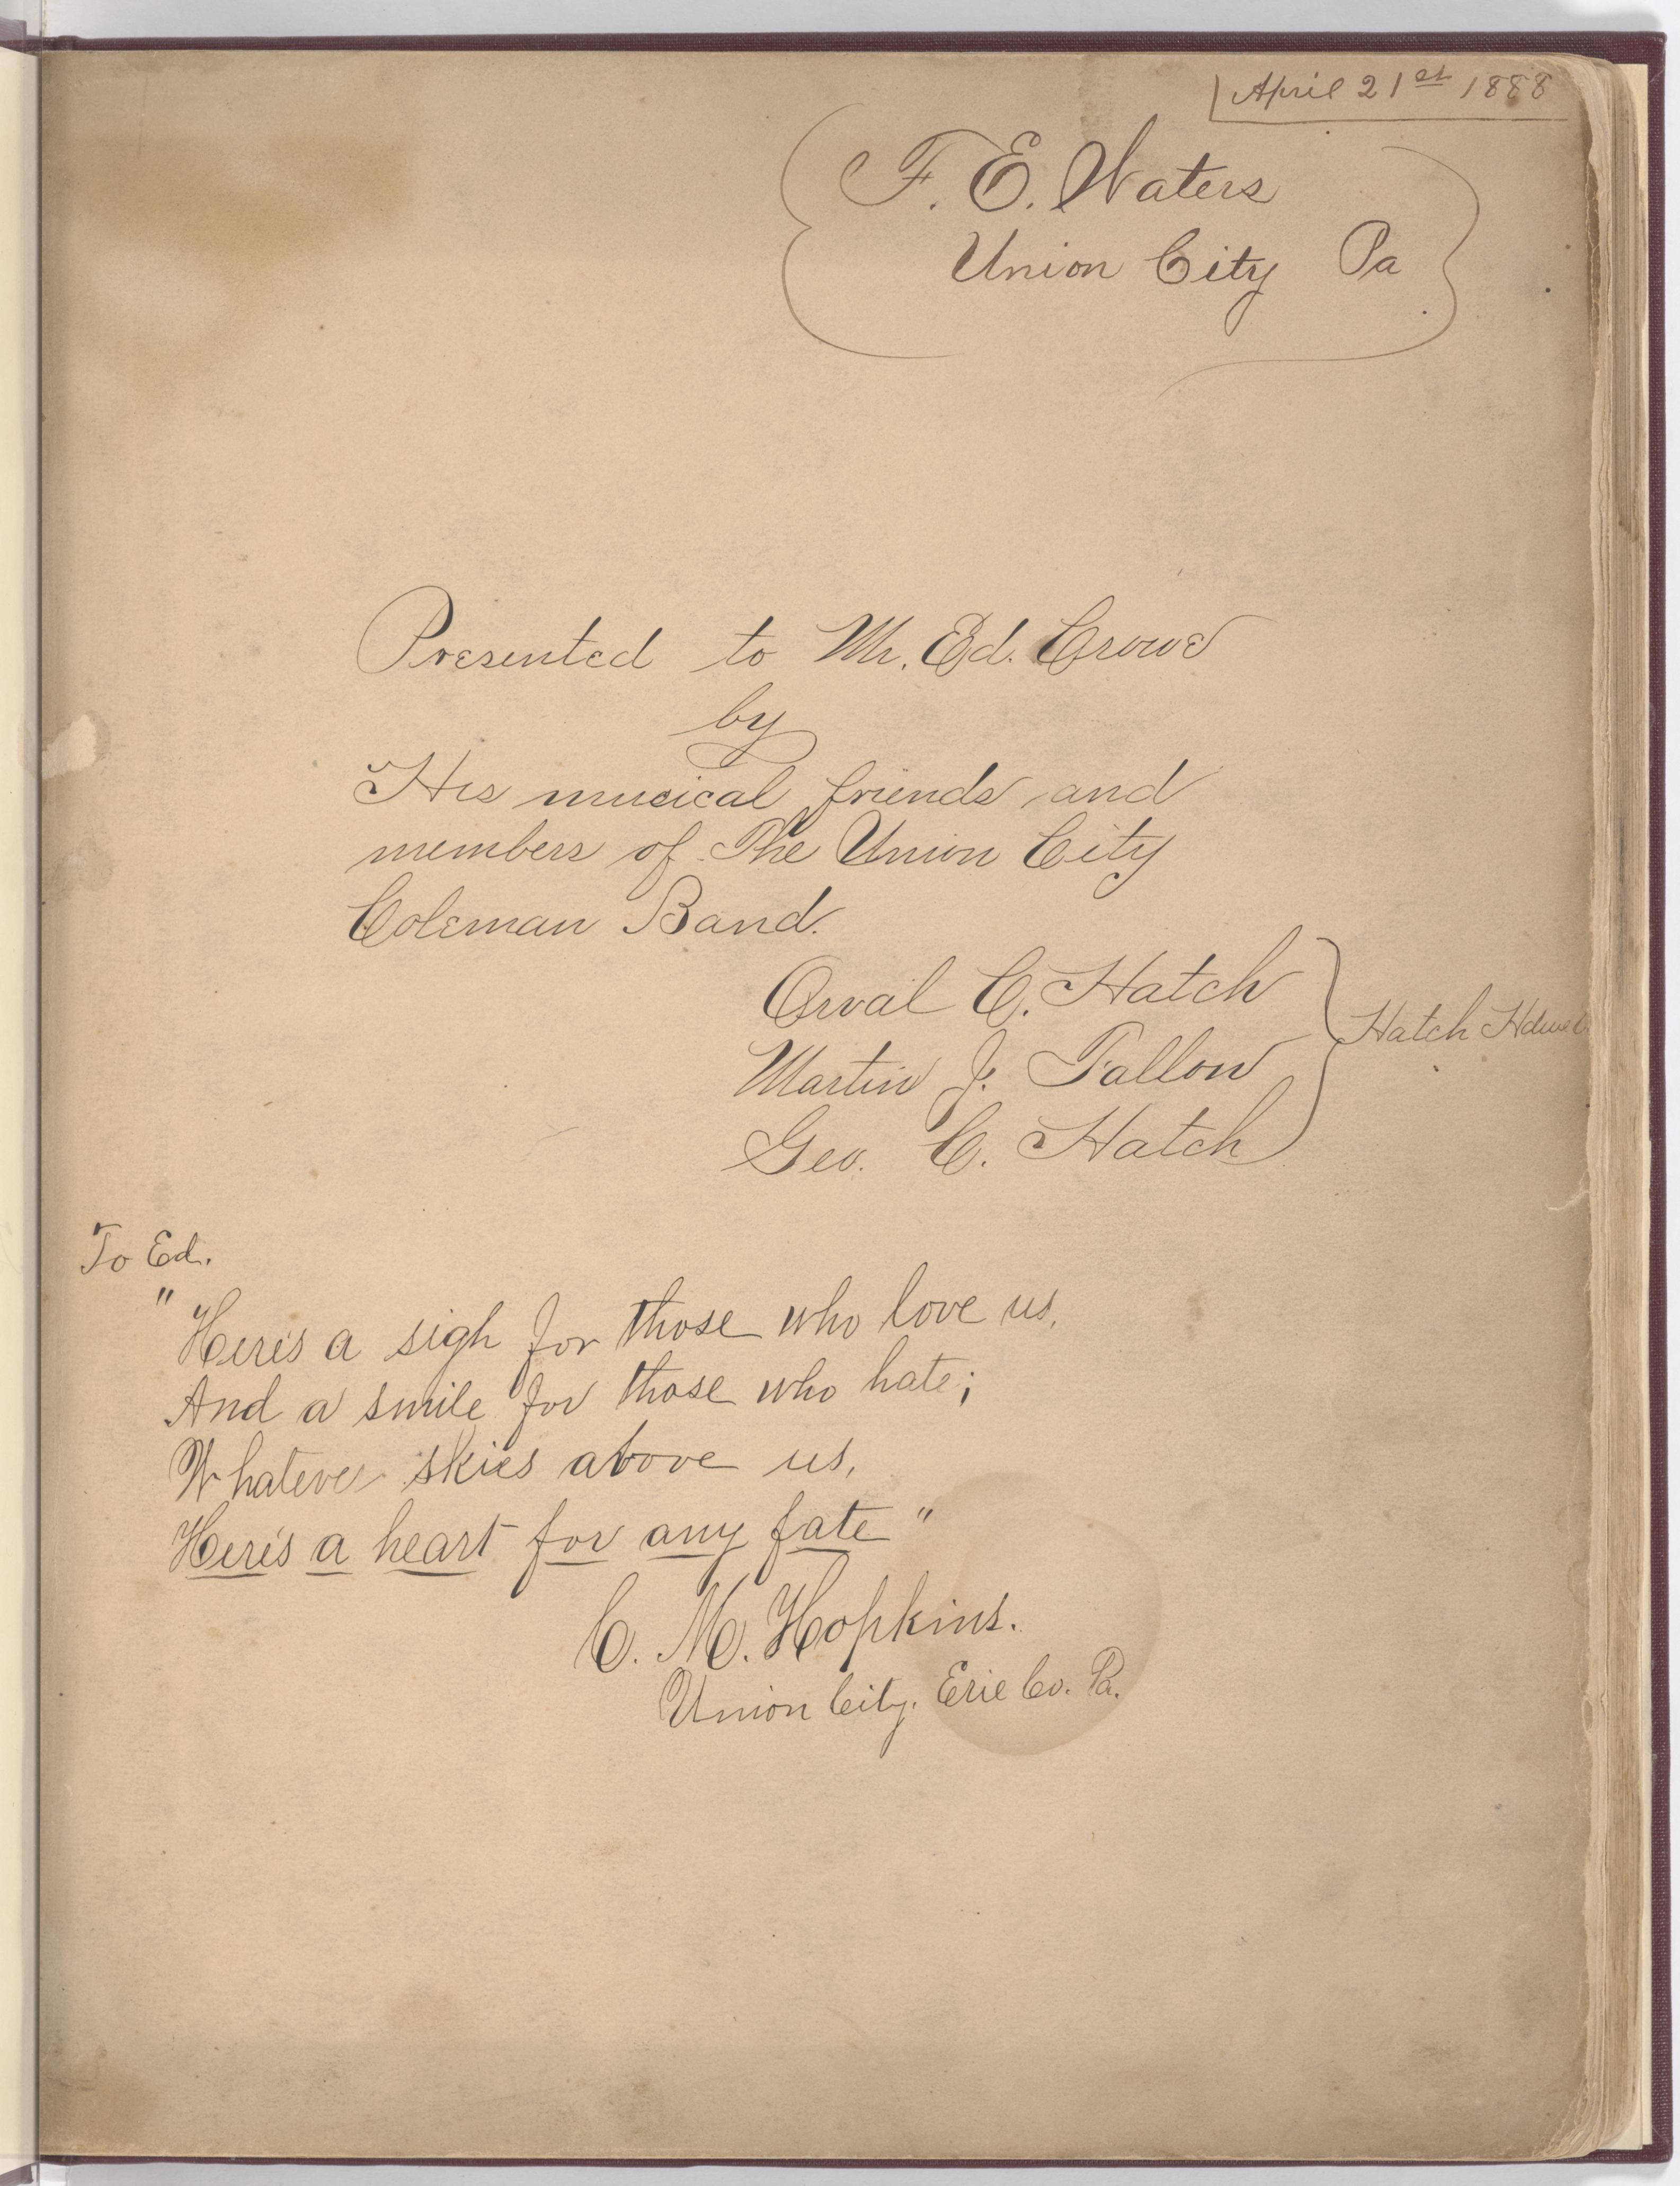 April 21st 1888
F. E. Waters
Union City Pa
Presented to Mr. Ed. Crowe
by
His musical friends and
members of The Union City
Coleman Band.
Orval C. Hatch
Martin J. Fallon
Geo. C. Hatch
Hatch Hdwe
To Ed.
"Here's a sigh for those who love us,
And a smile for those who hate;
Whatever skies above us,
Here's a heart for any fate"
C. M. Hopkins.
Union City. Erie Co. Pa.